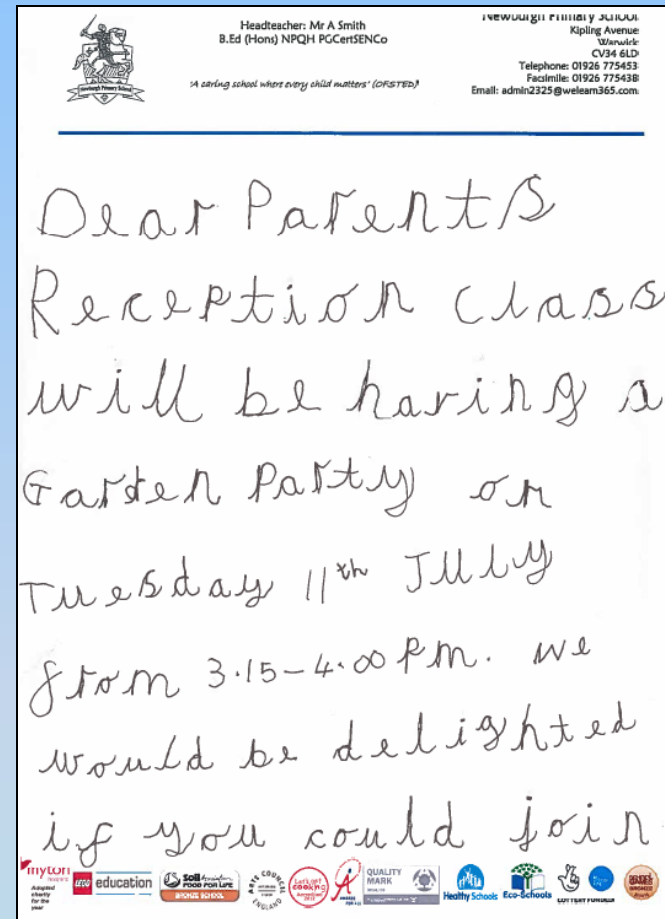 Headteacher: Mr A Smith
B.Ed (Hons) NPQH PGCertSENCo
'A caring school where every child matters' (OFSTED)
Newburgh Primary School
Kipling Avenue
Warwick
CV34 6LD
Telephone: 01926 775453
Facsimile: 01926 775438
Email: admin2325@welearn365.com
Newburgh Primary School
Dear Parents
Reception class
will be having a
Garden Party on
Tuesday 11th July
from 3.15-4.00 Pm. we
would be delighted
if you could join
myton
hospice
Adopted
charity
for the
year
LEGO education
Soil Association
FOOD FOR LIFE
BRONZE SCHOOL
ARTS COUNCIL
ENGLAND
Let's get
cooking
AWARDS
FOR ALL
QUALITY
MARK
Healthy Schools
Eco-Schools
LOTTERY FUNDED
BRONZE